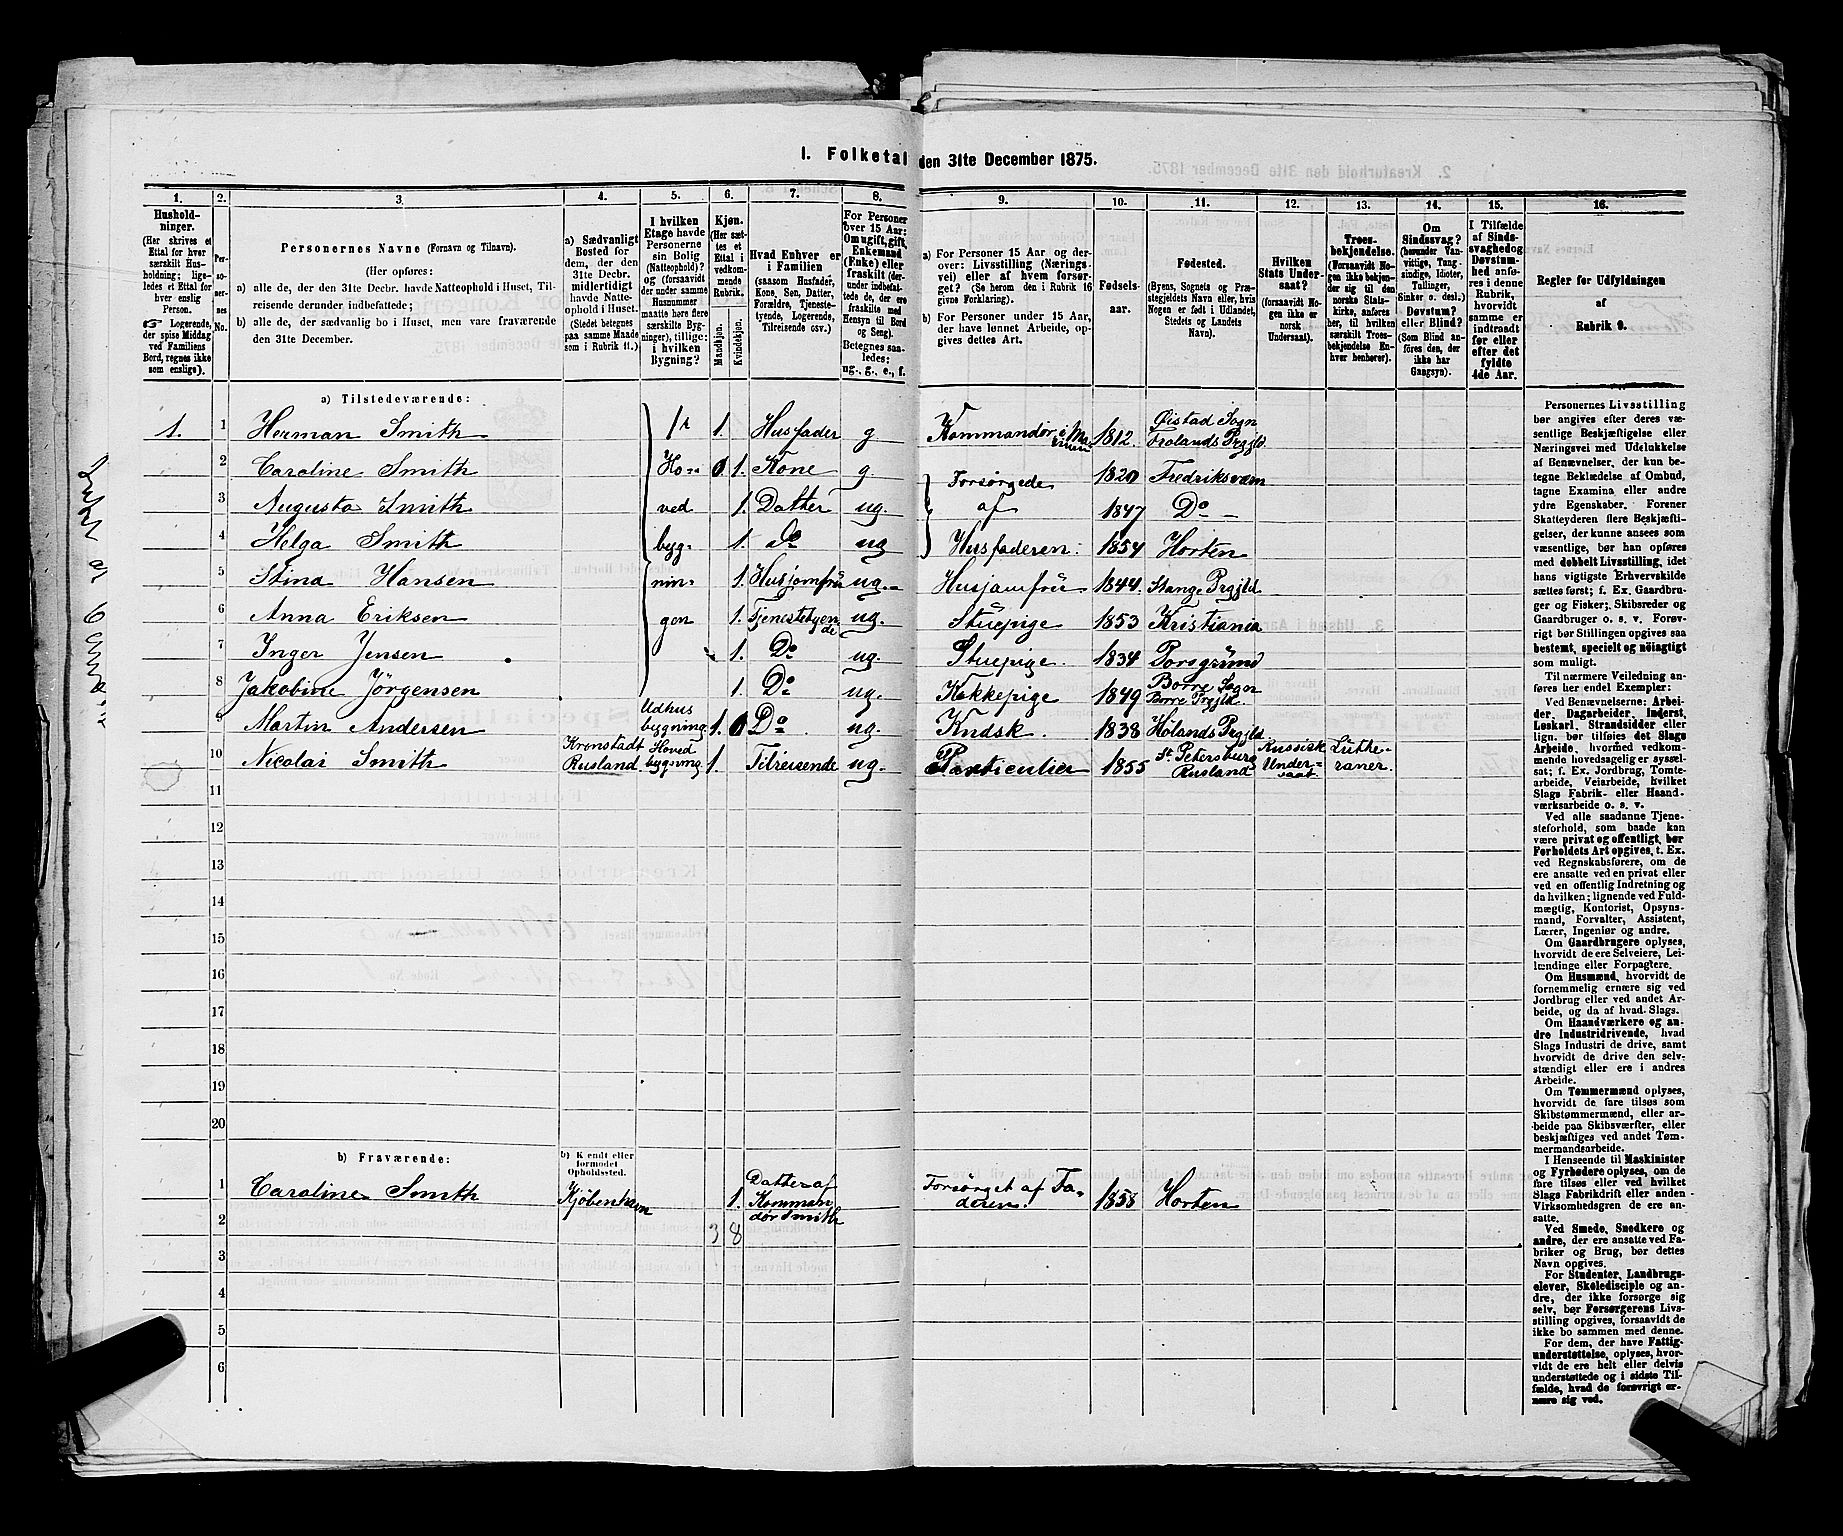 1. Folketal den 31te December 1875.
1. 2. 3. 4. 5. 6. 7. 8. 9. 10. 11. 12. 13. 14. 15. 16.
Hushold-
ninger.
(Her skrives et
Ettal for hver
særskilt Hus-
holdning; lige-
ledes et Ettal for
hver enslig
Person.
Logerende,
der spise Middag
ved Familiens
Bord, regnes ikke
som enslige).
Per-
so-
ner-
nes
No.
Personernes Navne (Fornavn og Tilnavn).
(Her opføres:
a) alle de, der den 31te Decbr. havde Natteophold i Huset, Til-
reisende derunder indbefattede;
b) alle de, der sædvanlig bo i Huset, men vare fraværende
den 31te December.
a) Sædvanligt
Bosted for
dem, der den
31te Decbr.
midlertidigt
havde Natte-
ophold i Huset.
(Stedet betegnes
paa samme Maade
som i Rubrik 11.)
I hvilken
Etage havde
Personerne
sin Bolig
(Natteophold)?
(og forsaavidt
der under samme
Husnummer
maatte høre flere
særskilte Byg-
ninger), tillige:
i hvilken
Bygning?
Kjøn.
(Her sæt-
tes et
Ettal i
vedkom-
mende
Rubrik.
Mandkjøn.
Kvindekjøn.
Hvad Enhver er
i Familien
(saasom Husfader,
Kone, Søn, Datter,
Forældre, Tjeneste-
tyende, Logerende,
Tilreisende osv.).
For Personer
over 15 Aar:
Om ugift, gift,
Enkemand
(Enke) eller
fraskilt (der-
under indbefat-
tede de, der ere
fraskilte med
Hensyn til Bord
og Seng).
Betegnes saa-
ledes:
ug., g., e., f.
a) For Personer 15 Aar og der-
over: Livsstilling (Nærings-
vei) eller af hvem forsør-
get? (Se herom den i Rubrik 16
givne Forklaring).
b) For Personer under 15 Aar,
der have lønnet Arbeide, op-
gives dettes Art.
Fødsels-
aar.
Fødested.
(Byens, Sognets og Præ-
stegjeldets Navn eller, hvis
Nogen er født i Udlandet,
Stedets og Landets
Navn).
Hvilken
Stats Under-
saat?
(forsaavidt No-
gen ikke er
norsk
Undersaat).
Troes-
bekjendelse.
(Forsaavidt No-
gen ikke bekjen-
der sig til den
norske Stats-
kirke, anføres
her, til hvilken
særskilt Troes-
bekjendelse En-
hver henhører).
Om
Sindssvag?
(herunder Van-
vittige, Tung-
sindige, Idioter,
Tullinger,
Sinker o. desl.)
Døvstum?
eller Blind?
(Som Blind an-
føres den, der
ikke har
Gangsyn).
I Tilfælde
af Sinds-
svaghed og
Døvstum-
hed anfø-
res i denne
Rubrik,
hvorvidt
samme er
indtraadt
før eller
efter det
fyldte
4de Aar.
Regler for Udfyldningen
af
Rubrik 9.
a) Tilstedeværende:
1. 1 Herman Smith 1. Husfader g Kommandør i Ma- 1812. Øistad Sogn
Frolands Prgjld
2 Caroline Smith Ho- 0 1. Kone g. Forsørgede 1820 Fredriksværn
3 Augusta Smith ved 1. Datter ug. af 1847 Do
4 Helga Smith byg- 1. do ug Husfaderen. 1854 Horten
5 Stina Hansen nin- 1. Husjomfru ug. Husjomfru 1844. Stange Prgjld
6 Anna Eriksen gen 1. Tjenestetyende ug. Stuepige 1853 Kristiania
7 Inger Jensen 1. Do ug. Stuepige. 1834 Porsgrund
8 Jakobine Jörgensen 1. Do ug. Kokkepige 1849 Borre Sogn
Borre Prgjld.
9 Martin Andersen Udhus
bygning. 1. 0 Do ug. Kudsk. 1838 Hølands Prgjld
10 Nicolai Smith Kronstadt
Rusland Hoved
bygning 1. Tilreisende ug. Particulier 1855 St. Petersburg
Rusland Russisk
Under-
saat. Luthe-
raner.
11
12
13
14
15
16
17
18
19
20
b) Fraværende:
b) Kjendt eller
formodet
Opholdssted.
1 Caroline Smith Kjøbenhavn 1. Datter af
Komman
dør Smith Forsørget af Fa-
deren. 1858 Horten
2 3 8
3
4
5
6
Personernes Livsstilling
bør angives efter deres væ-
sentlige Beskjæftigelse eller
Næringsvei med Udelukkelse
af Benævnelser, der kun be-
tegne Beklædelse af Ombud,
tagne Examina eller andre
ydre Egenskaber. Forener
Skatteyderen flere Beskjæfti-
gelser, der kunne ansees som
væsentlige, bør han opføres
med dobbelt Livsstilling, idet
hans vigtigste Erhvervskilde
sættes først; f. Ex. Gaardbru-
ger og Fisker; Skibsreder og
Gaardbruger o. s. v. Forøv-
rigt bør Stillingen opgives saa
bestemt, specielt og nöiagtigt
som muligt.
Til nærmere Veiledning an-
føres her endel Exempler:
Ved Benævnelserne: Arbei-
der, Dagarbeider, Inderst,
Løskarl, Strandsidder eller
lign. bør tilføies det Slags
Arbeide, hvormed vedkom-
mende hovedsagelig er syssel-
sat; f. Ex. Jordbrug, Tomte-
arbeide, Veiarbeide, hvilket
Slags Fabrik- eller Haand-
værksarbeide o. s. v.
Ved alle saadanne Tjene-
steforhold, som baade kan
være privat og offentligt, bør
Forholdets Art opgives, t. Ex.
ved Regnskabsførere, om de
ere ansatte ved en privat eller
ved en offentlig Indretning og
da hvilken; lignende ved Fuld-
mægtig, Kontorist, Opsyns-
mand, Forvalter, Assistent,
Lærer, Ingeniør og andre.
Om Gaardbrugere oplyses,
hvorvidt de ere Selveiere, Lei-
lændinge eller Forpagtere.
Om Husmænd, hvorvidt de
fornemmelig ernære sig ved
Jordbrug eller ved andet Ar-
beide, og da af hvad Slags.
Om Haandværkere og an-
dre Industridrivende, hvad
Slags Industri de drive, samt
hvorvidt de drive den selv-
stændigt eller ere i andres
Arbeide.
Om Tømmermænd oplyses,
hvorvidt de fare tilsøs som
Skibstømmermænd, eller ar-
beide paa Skibsværfter, eller
beskjæftiges ved andet Tøm-
mermandsarbeide.
I Henseende til Maskinister
og Fyrbødere oplyses, om de
fare tilsøs eller ved hvilket
Slags Fabrikdrift eller anden
Virksomhedsgren de ere an-
satte.
Ved Smede, Snedkere og
andre, der ere ansatte ved Fa-
briker og Brug, bør dettes
Navn opgives.
For Studenter, Landbrugs-
elever, Skoledisciple og an-
dre, der ikke forsørge sig
selv, bør Forsørgerens Livs-
stilling opgives, forsaavidt de
ikke bo sammen med denne.
For dem, der have Fattig-
understøttelse, oplyses, hvor-
vidt de ere helt eller delvis
understøttede og i sidste Til-
fælde, hvad de forøvrigt er-
nære sig ved.